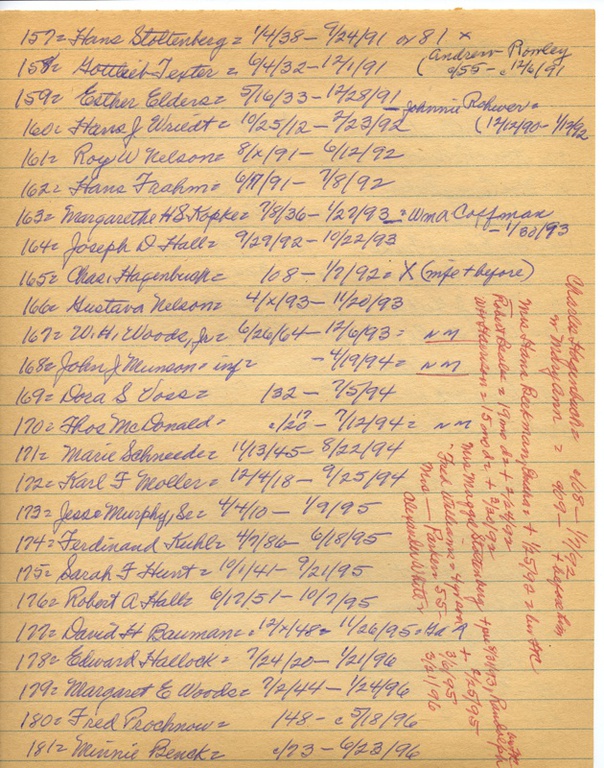 157= Hans Stoltenberg = 1/4/38 - 9/24/91 or 81 x
158= Gottlieb Texter = 6/4/32 - 12/1/91 (Andrew Rowley
c/55 - c 12/6/91
159= Esther Elders = 5/16/33 - 12/28/91 - Johnnie Rohwer =
160= Hans J. Wriedt = 10/25/12 - 2/23/92 (12/12/90 - 1/12/92
161= Roy W Nelson = 8/x/91 - 6/12/92
162= Hans Frahm = 6/11/91 - 7/8/92
163= Margarethe H S Kopke = 7/8/36 - 1/27/93 = Wm A Coffman
164= Joseph D Hall = 9/29/92 - 10/22/93 - 1/30/93
165= Chas. Hagenbuch = 108 - 1/7/92 = X (mfe + before)
166= Gustava Nelson = 4/x/93 - 11/20/93
167= W.H. Woods, Jr = 6/26/64 - 12/6/93 = NM
168= John J Munson = inf = - 4/19/94 = NM
169= Dora S Voss = 132 - 7/5/94
170= Thos McDonald = c/20 17 - 7/12/94 = NM
171= Marie Schneede = 11/13/45 - 8/22/94
172= Karl F Moller = 12/4/18 - 9/25/94
173= Jesse Murphy, Sr = 4/4/10 - 1/9/95
174= Ferdinand Kuhl = 4/7/86 - 6/18/95
175= Sarah F Hunt = 10/1/41 - 9/21/95
176= Robert A Hall = 6/17/51 - 10/7/95
177= David H Bauman = c 12/x/48 = 11/26/95 = Gd A
178= Edward Hallock = 7/24/20 - 1/21/96
179= Margaret E Woods = 7/2/44 - 1/24/96
180= Fred Prochnow = 148 - c 5/18/96
181= Minnie Benck = c/73 - 6/23/96
Charles Hagenbuch = c/08 - 1/7/92
or Mary Ann = 909 - + before him
Mrs Hans Beekman, = + 1/25/92 = bur
Robert = 19 mo d = + 2/24/92
Wm Harrison = 15 mo d = + 3/30/92
Mrs Margaret Stoltenberg + 8/2/93, Randolph
Fred Williams = 4 yr son + 2/25/95
Mrs — Paulsen 55 - 3/6/95
Alexander = 3/21/96